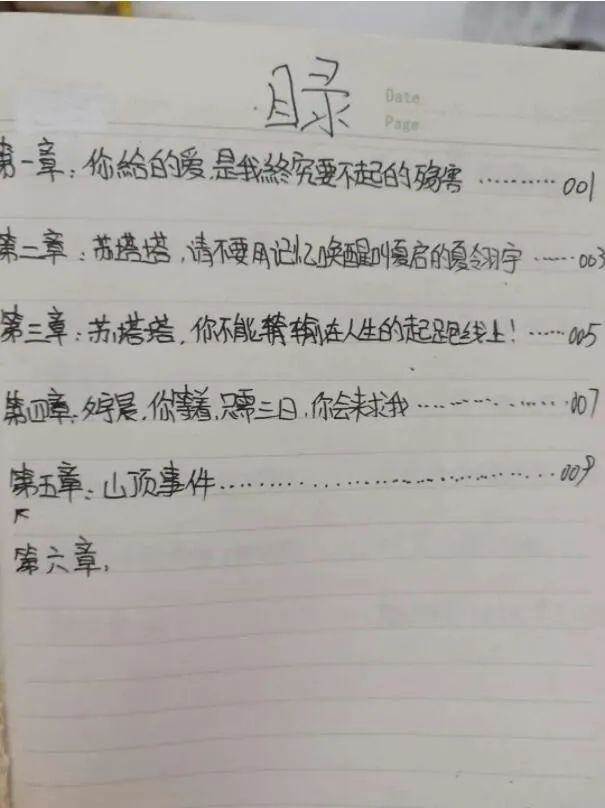 目录
Date
Page
第一章：你給的爱,是我終究要不起的殤害 ………… 001
第二章：苏塔塔，请不要用记忆唤醒叫夏启的夏翎宇 …… 003
第三章：苏塔塔，你不能输在人生的起跑线上！…… 005
第四章，夕宇晨，你等着,只需三日，你会来求我 ………… 007
第五章：山顶事件 ………… 009
第六章，